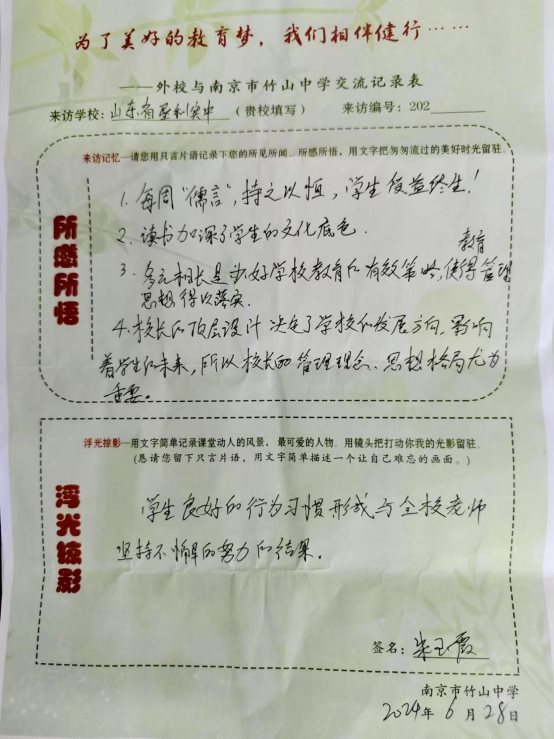 为了美好的教育梦，我们相伴健行……
——外校与南京市竹山中学交流记录表
来访学校：山东省垦利实中（贵校填写） 来访编号：202
来访记忆—请您用只言片语记录下您的所见所闻、所感所悟，用文字把匆匆流过的美好时光留驻。
所感所悟
1. 每周“儒言”，持之以恒，学生受益终生！
2. 读书加深了学生的文化底色.
教育
3. 多元相长是办好学校教育的有效策略，使得管理
思想得以落实.
4. 校长的顶层设计决定了学校的发展方向，影响
着学生的未来，所以校长的管理理念、思想格局尤为
重要。
浮光掠影—用文字简单记录课堂动人的风景，最可爱的人物。用镜头把打动你我的光影留驻。
（恳请您留下只言片语，用文字简单描述一个让自己难忘的画面。）
浮光掠影
学生良好的行为习惯形成与全校老师
坚持不懈的努力的结果。
签名：朱玉霞
南京市竹山中学
2024年 6 月 28日